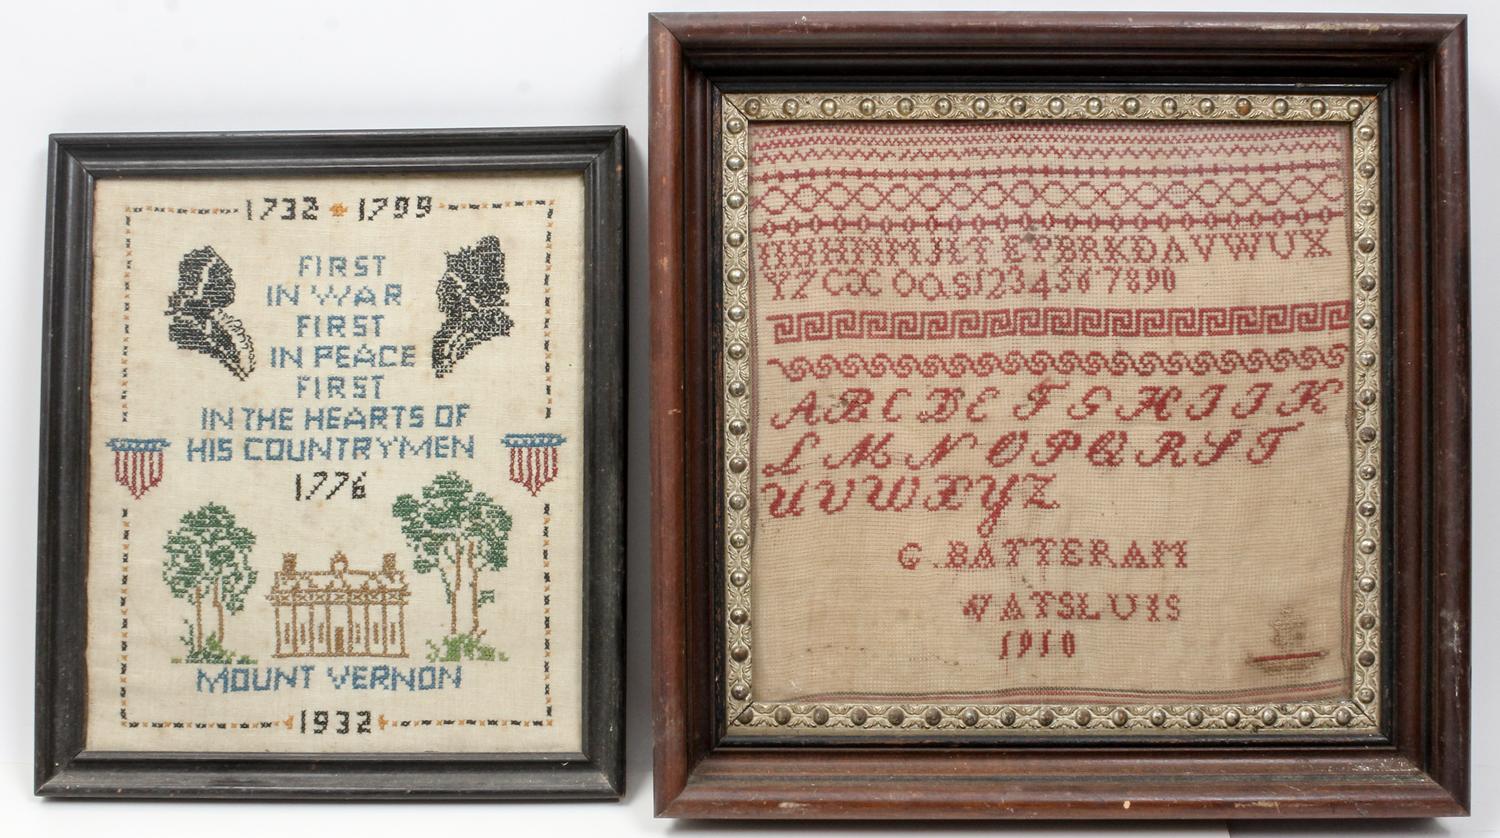 1732 1799
FIRST
IN WAR
FIRST
IN PEACE
FIRST
IN THE HEARTS OF
HIS COUNTRYMEN
1776
MOUNT VERNON
1932
JLTEPBRKDAVWUX
YZCX OQS1234567890
ABCDE FGHIJK
LMNOPQRST
UVWXYZ
G. BATTERAM
VATSLUIS
1910